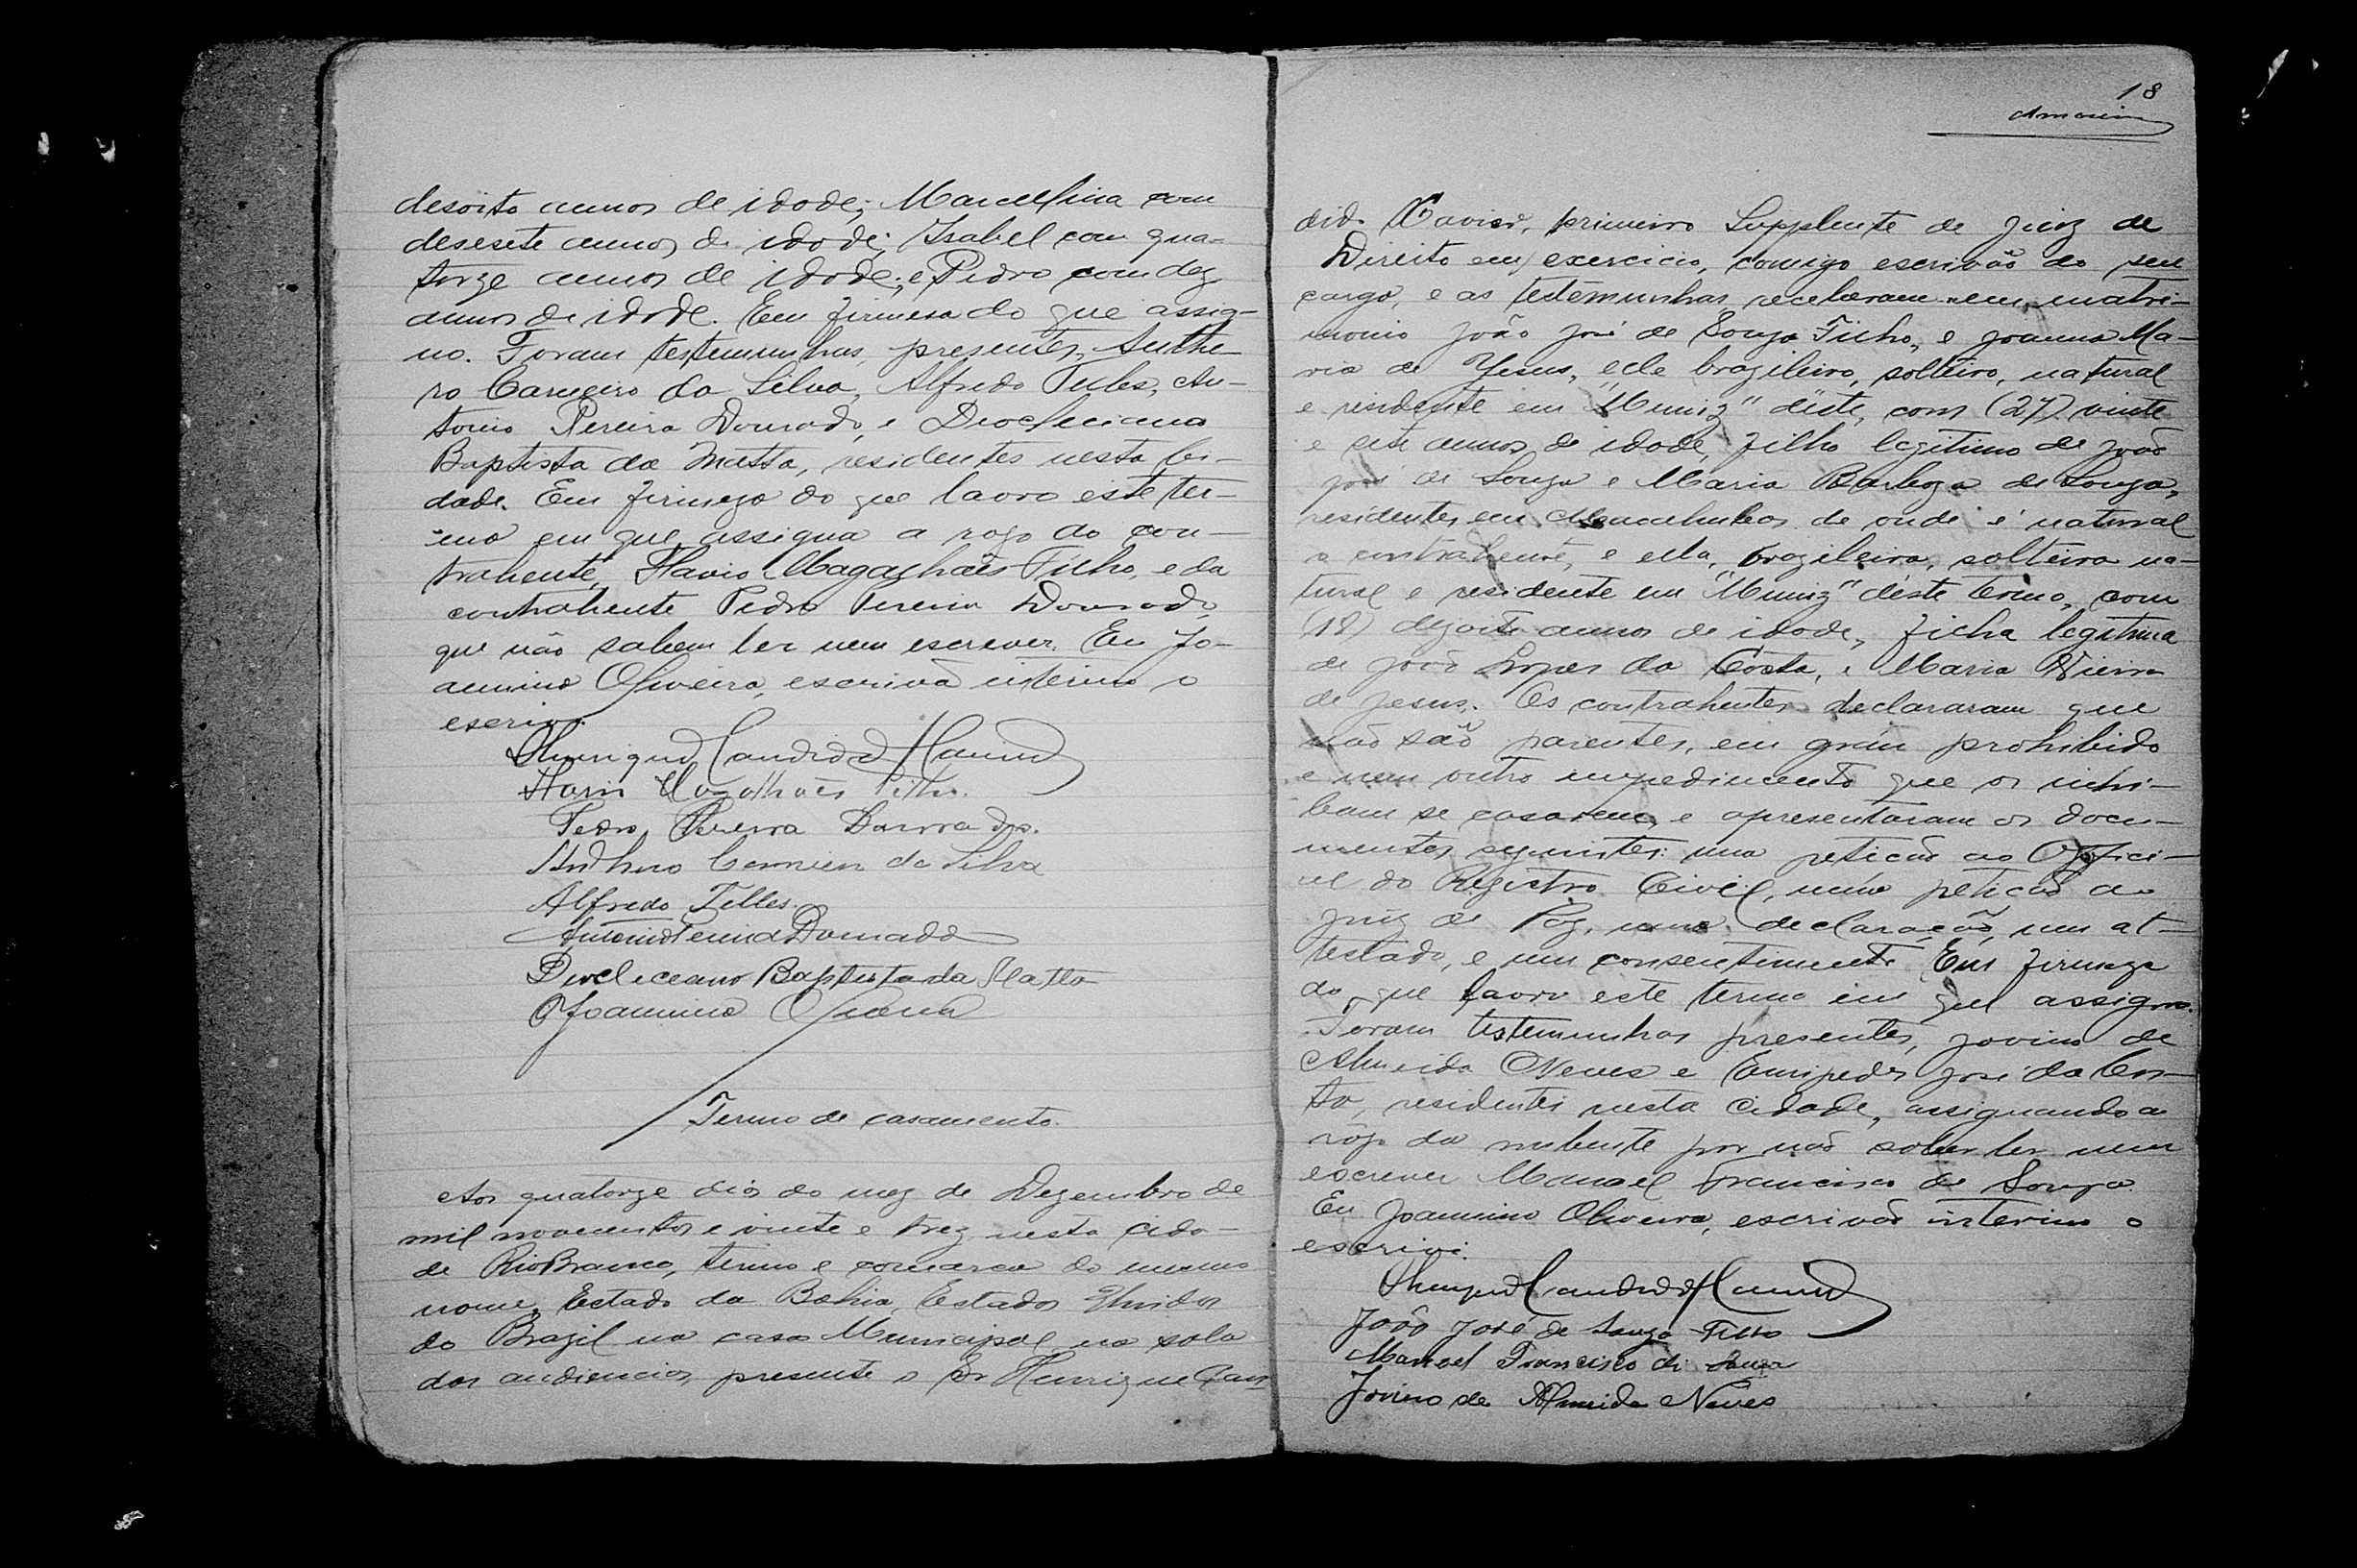 desoito annos de idade; Marcellina com
desesete annos de idade; Isabel com qua-
torze annos de idade; e Pedro com dez
annos de idade. Em firmesa do que assig-
no. Foram testemunhas presentes, Anthe-
ro Carneiro da Silva, Alfredo Telles, An-
tonio Pereira Dourado, e Diocleciano
Baptista da Matta, residentes nesta Ci-
dade. Em firmeza do que lavro este ter-
mo em que assigna a rogo do con-
trahente, Flavio Magalhães Filho, e da
contrahente Pedro Pereira Dourado,
que não sabem ler nem escrever. Eu Jo-
annino Oliveira, escrivão interino o
escrivi.
Henrique Candido
Flavio Magalhães Filho.
Pedro Pereira Dourado.
Anthero Carneiro da Silva
Alfredo Telles.
Antonio Pereira Dourado
Diocleceano Baptista da Matta
Joannino Oliveira
Termo de casamento.
Aos quatorze dias do mez de Dezembro de
mil novecentos e vinte e trez, nesta Cida-
de Rio Branco, termo e comarca do mesmo
nome, Estado da Bahia, Estados Unidos
do Brazil na casa Municipal na sala
das audiencias, presente o Sr. Henrique Can-
18
dido Xavier, primeiro Supplente de Juiz de
Direito em exercicio, comigo escrivão do seu
cargo, e as testemunhas, receberam-se em matri-
monio João José de Souza Filho, e Joanna Ma-
ria de Yesus, elle brazileiro, solteiro, natural
e residente em "Muniz" deste, com (27) vinte
e sete annos de idade, filho legitimo de João
José de Souza e Maria Barboza de Souza,
residentes em de onde é natural
o contrahente, e ella, brazileira, solteira na-
tural e residente em "Muniz" déste termo, com
(18) dezoito annos de idade, filha legitima
de João Lopes da Costa, e Maria Vieira
de Jesus. Os contrahentes declararam que
não são parentes, em gráu prohibido
e nem outro impedimento que os inhi-
bam se casarem, e apresentaram os docu-
mentos seguintes: uma petição ao Offici-
al do Registro Civil, uma petição ao
Juiz de Paz, uma declaração, um at-
testado, e um consentimento. Em firmeza
do que lavro este termo em que assigno.
Foram testemunhas presentes, Jovino de
Almeida Neves e Euripedes José da Cos-
ta, residentes nesta Cidade, assignando a
rogo da nubente por não saber ler nem
escrever Manoel Francisco de Souza.
Eu Joannino Oliveira, escrivão interino o
escrivi.
Henrique Candido
João José de Souza Filho
Manoel Francisco de Souza
Jovino de Almeida Neves